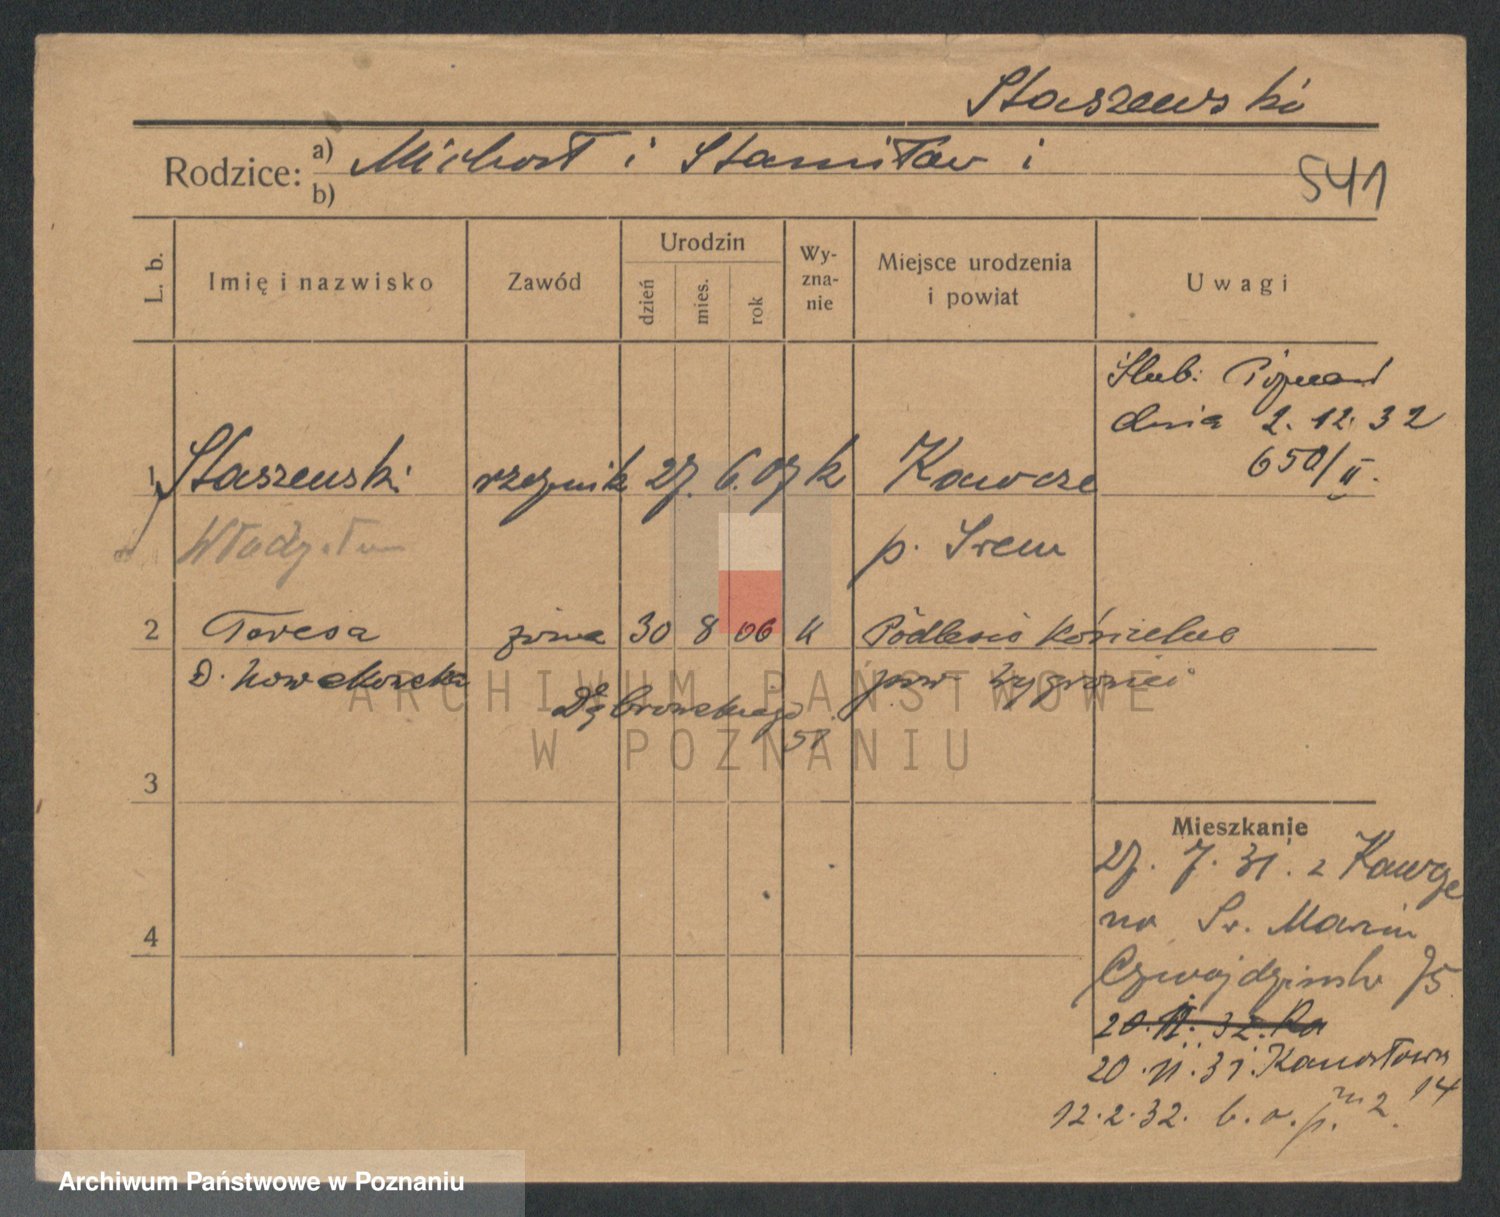 Staszewski
Rodzice: a) Michał i Stanisław i
b)
541
L. b.
Imię i nazwisko
Zawód
Urodzin
dzień
mies.
rok
Wy-
zna-
nie
Miejsce urodzenia
i powiat
Uwagi
Ślub: Poznań
dnia 2. 12. 32
650/II.
1 Staszewski rzeźnik 27. 6. 07 k Kawcze
Władysław p. Śrem
2 Teresa żona 30 8 06 k Podlesie Kościelne
D. Nowakowska pow.
Dąbrowskiego
51
3
4
Mieszkanie
27. 7. 31. z Kawcze
na Św. Marcin
75
20. II. 32.
20. II. 31. Kanałowa
14
12. 2. 32. b. a. p. m 2.
ARCHIWUM PAŃSTWOWE
W POZNANIU
Archiwum Państwowe w Poznaniu